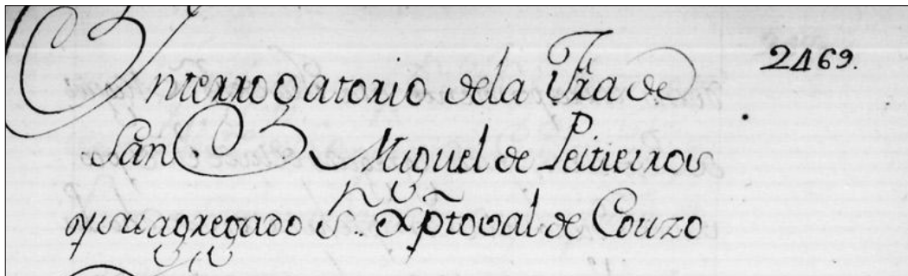 Interrogatorio dela fra de 2469.
San Miguel de Peitieiros
y su agregado Sn. Xptoval de Couzo